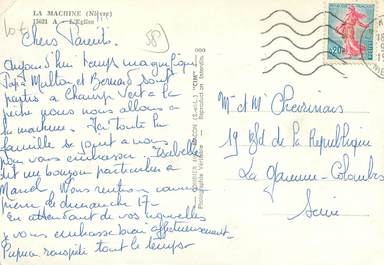 LA MACHINE (Nièvre)
15021 A - L'Eglise
Chers Parents
Aujourd'hui temps magnifique
Papa Multon et Bernard sont
partis à Champ Vert à la
pêche nous nous allons à
la machine. Ici toute la
famille se joint à nous
pour vous embrasser. Isabelle
dit un bonjour particulier à
Marcel. Nous rentrons
le dimanche 17-
En attendant de vos nouvelles
vous embrasse bien affectueusement
tout le temps
COMBIER MACON (S.-et-L.) "CIM"
Photographie Véritable - Reproduction Interdite
Mr et Me
19 Bd de la République
La Garenne-Colombes
Seine
0,20